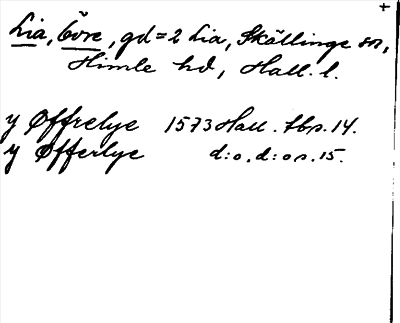 +
Lia, Övre, gd = 2 Lia, Skällinge sn,
Himle hd, Hall. l.
y Øffrelye 1573 Hall. tbr. 14.
y Øfferlye d:o. d:o s. 15.